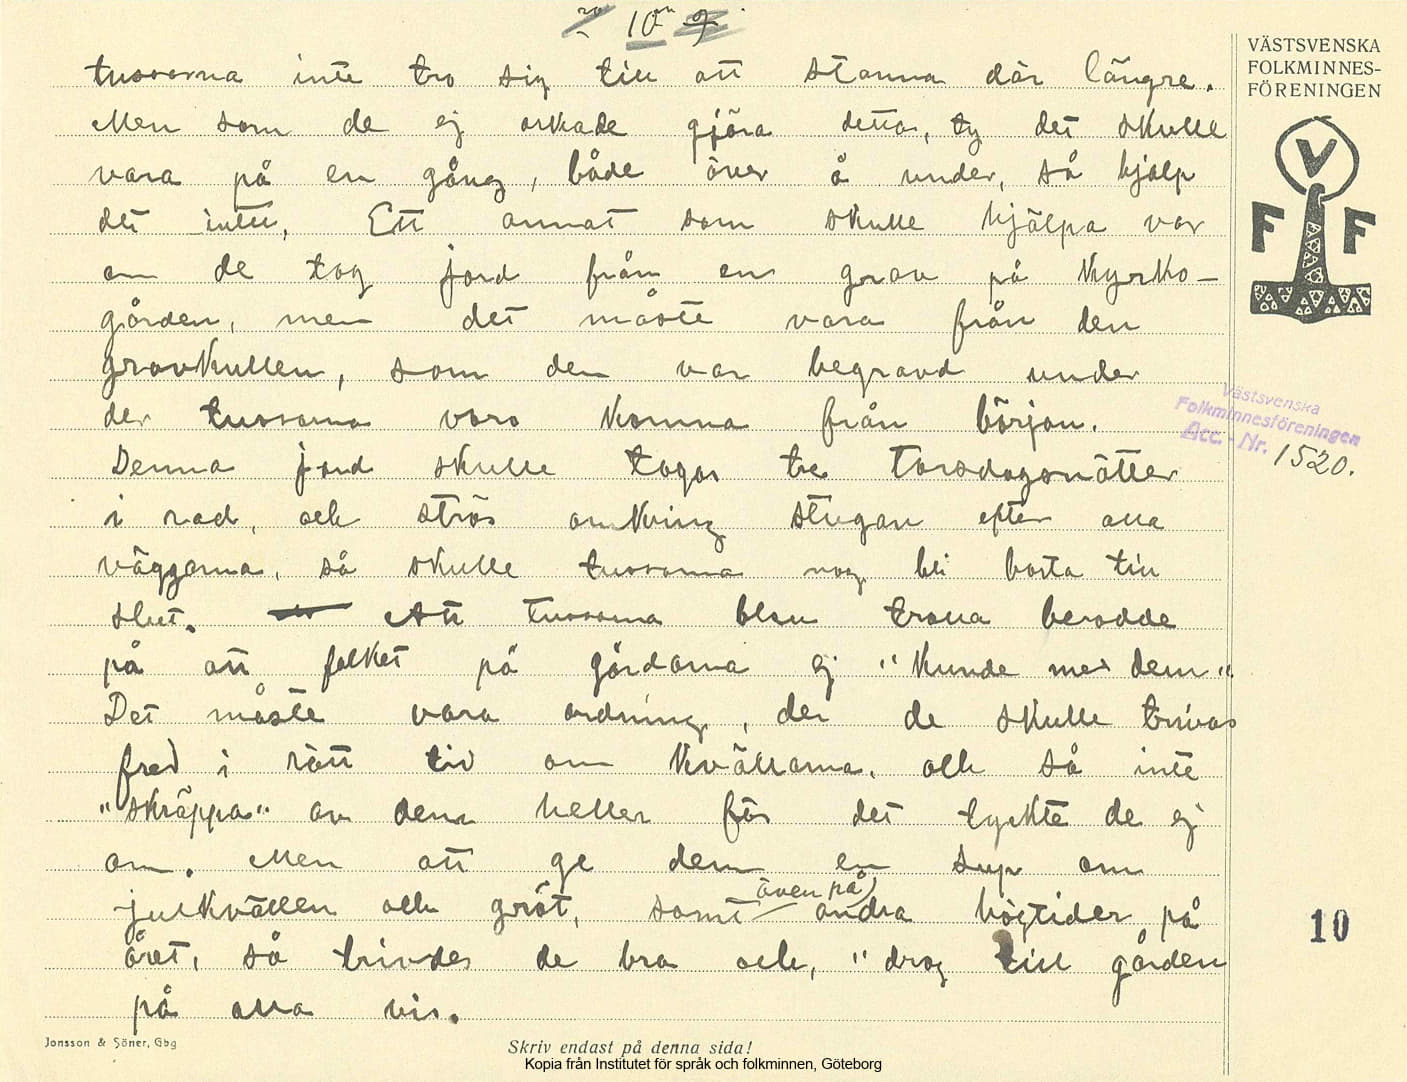 10
tussarna inte tro sig till att stanna där längre.
Men som de ej orkade gjöra detta, ty det skulle
vara på en gång, både över å under, så hjalp
det inte, Ett annat som skulle hjälpa var
om de tog jord från en grav på Kyrko-
gården, men det måste vara från den
gravkullen, som den var begravd under
der tussarna voro komna från början.
Denna jord skulle tagas tre Torsdagsnätter
i rad, och strös omkring stugan efter alla
väggarna, så skulle tussarna nog bli borta till
slut. Att tussarna blev trolla berodde
på att folket på gårdarna ej "kunde med dem"
Det måste vara ordning, der de skulle trivas
fred i rätt tid om kvällarna, och så inte
"skräppa" av dem heller för det tyckte de ej
om. Men att ge dem en sup om
även på
julkvällen och gröt, samt andra högtider på
året, så trivdes de bra och, "drog till gården
på alla vis.
VÄSTSVENSKA
FOLKMINNES-
FÖRENINGEN
V
F F
Västsvenska
Folkminnesföreningen
Acc. - Nr. 1520.
10
Jonsson & Söner, Gbg
Skriv endast på denna sida!
Kopia från Institutet för språk och folkminnen, Göteborg